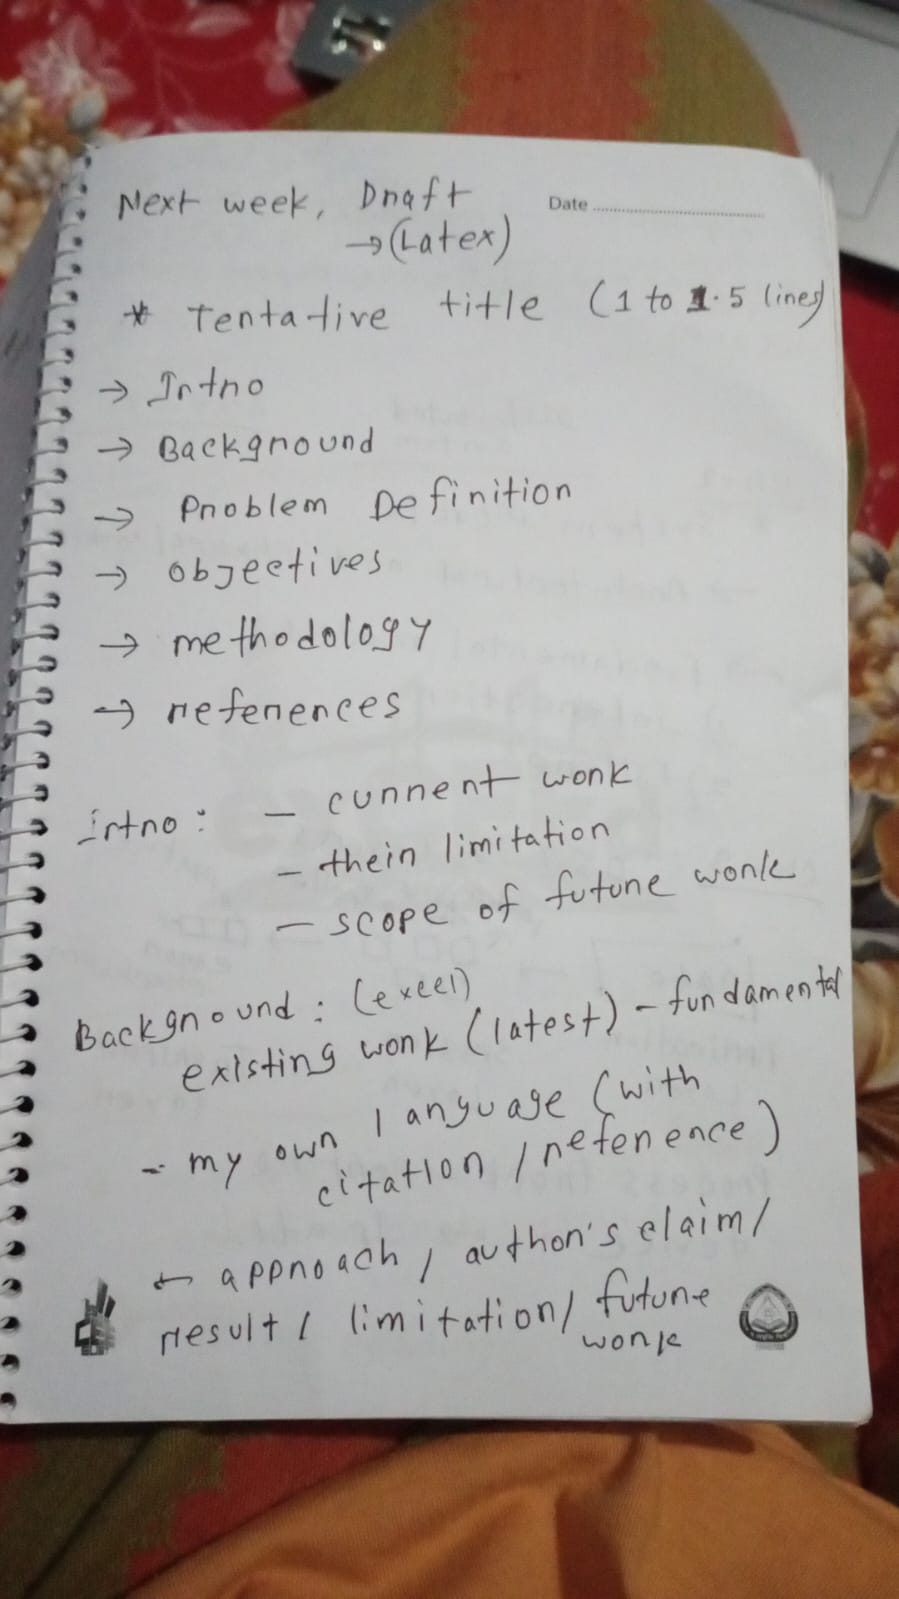 Next week, Draft
Date
→ (Latex)
* Tentative title (1 to 1.5 lines)
→ Intro
→ Background
→ Problem Definition
→ objectives
→ methodology
→ references
intro: - current work
- their limitation
- scope of future work
Background: (excel)
existing work (latest) - fundamental
- my own language (with
citation / reference)
← approach / author's claim /
result / limitation / future
work